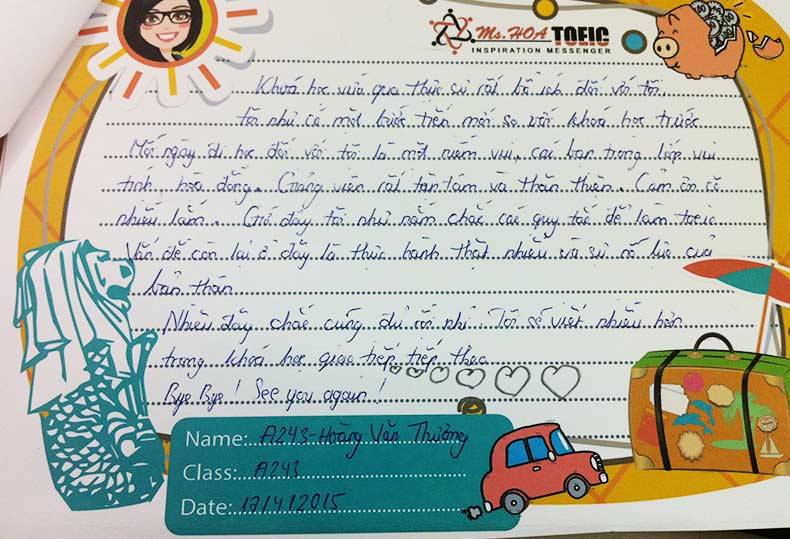 Ms. HOA TOEIC
INSPIRATION MESSENGER
Khoá học vừa qua thực sự rất bổ ích đối với tôi.
tôi như có một bước tiến mới so với khoá học trước
Mỗi ngày đi học đối với tôi là một niềm vui, các bạn trong lớp vui
tính, hòa đồng. Giảng viên rất tận tâm và thân thiện. Cảm ơn cô
nhiều lắm. Giờ đây tôi như nắm chắc các quy tắc để làm toeic
Vấn đề còn lại ở đây là thực hành thật nhiều và sự nỗ lực của
bản thân
Nhiêu đây chắc cũng đủ rồi nhỉ. Tôi sẽ viết nhiều hơn
trong khoá học giao tiếp tiếp theo
Bye Bye! See you again!
Name: A243-Hoàng Văn Thưởng
Class: A243
Date: 17/4/2015